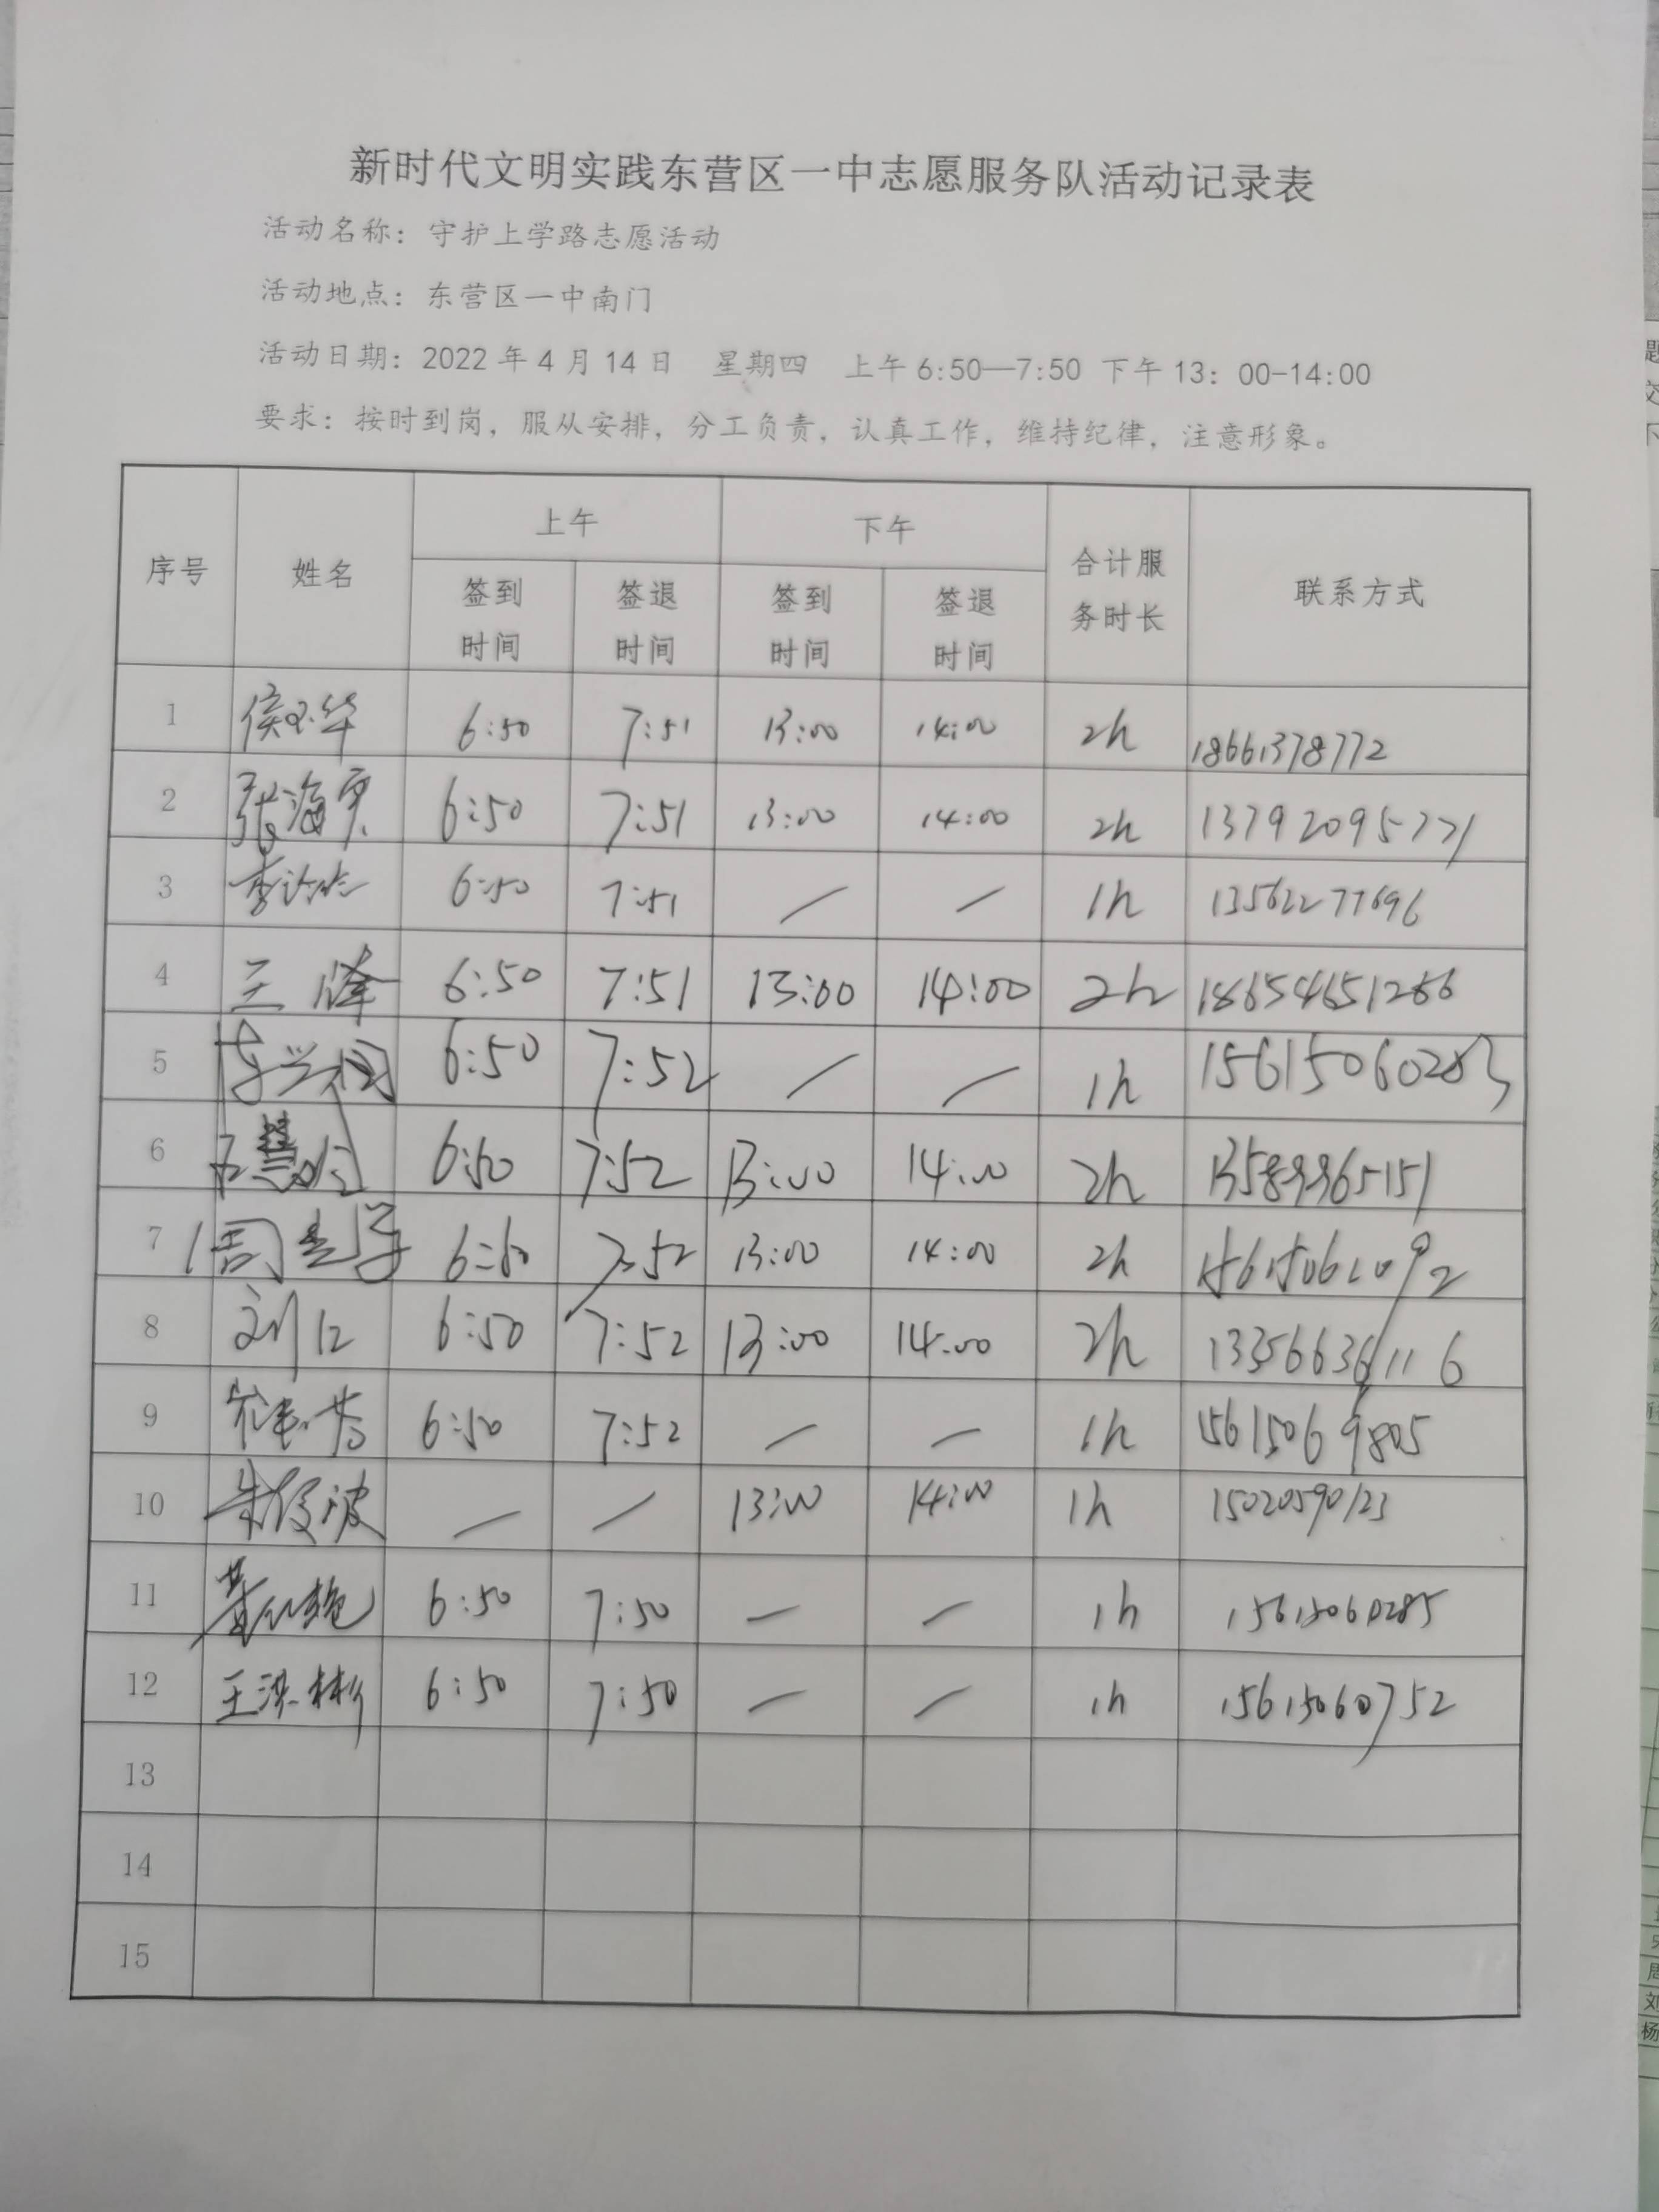 新时代文明实践东营区一中志愿服务队活动记录表
活动名称：守护上学路志愿活动
活动地点：东营区一中南门
活动日期：2022年4月14日 星期四 上午6:50—7:50 下午13：00-14:00
要求：按时到岗，服从安排，分工负责，认真工作，维持纪律，注意形象。
序号 姓名 上午 下午 合计服务时长 联系方式
签到时间 签退时间 签到时间 签退时间
1 侯玉华 6:50 7:51 13:00 14:00 2h 18661378772
2 张海 6:50 7:51 13:00 14:00 2h 13792095771
3 李 6:50 7:51 / / 1h 13562277696
4 王峰 6:50 7:51 13:00 14:00 2h 18654651266
5 6:50 7:52 / / 1h 15615060283
6 慧 6:50 7:52 13:00 14:00 2h 13589965151
7 周 6:50 7:52 13:00 14:00 2h 15615061092
8 刘 6:50 7:52 13:00 14:00 2h 13356636116
9 6:50 7:52 — — 1h 15615069805
10 朱俊波 — / 13:00 14:00 1h 15020590123
11 黄红艳 6:50 7:50 — — 1h 15615060285
12 王洪彬 6:50 7:50 — — 1h 15615060752
13
14
15